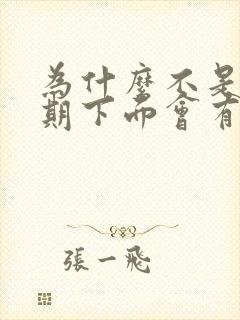 為什麼不是
期下而會有
張一飛